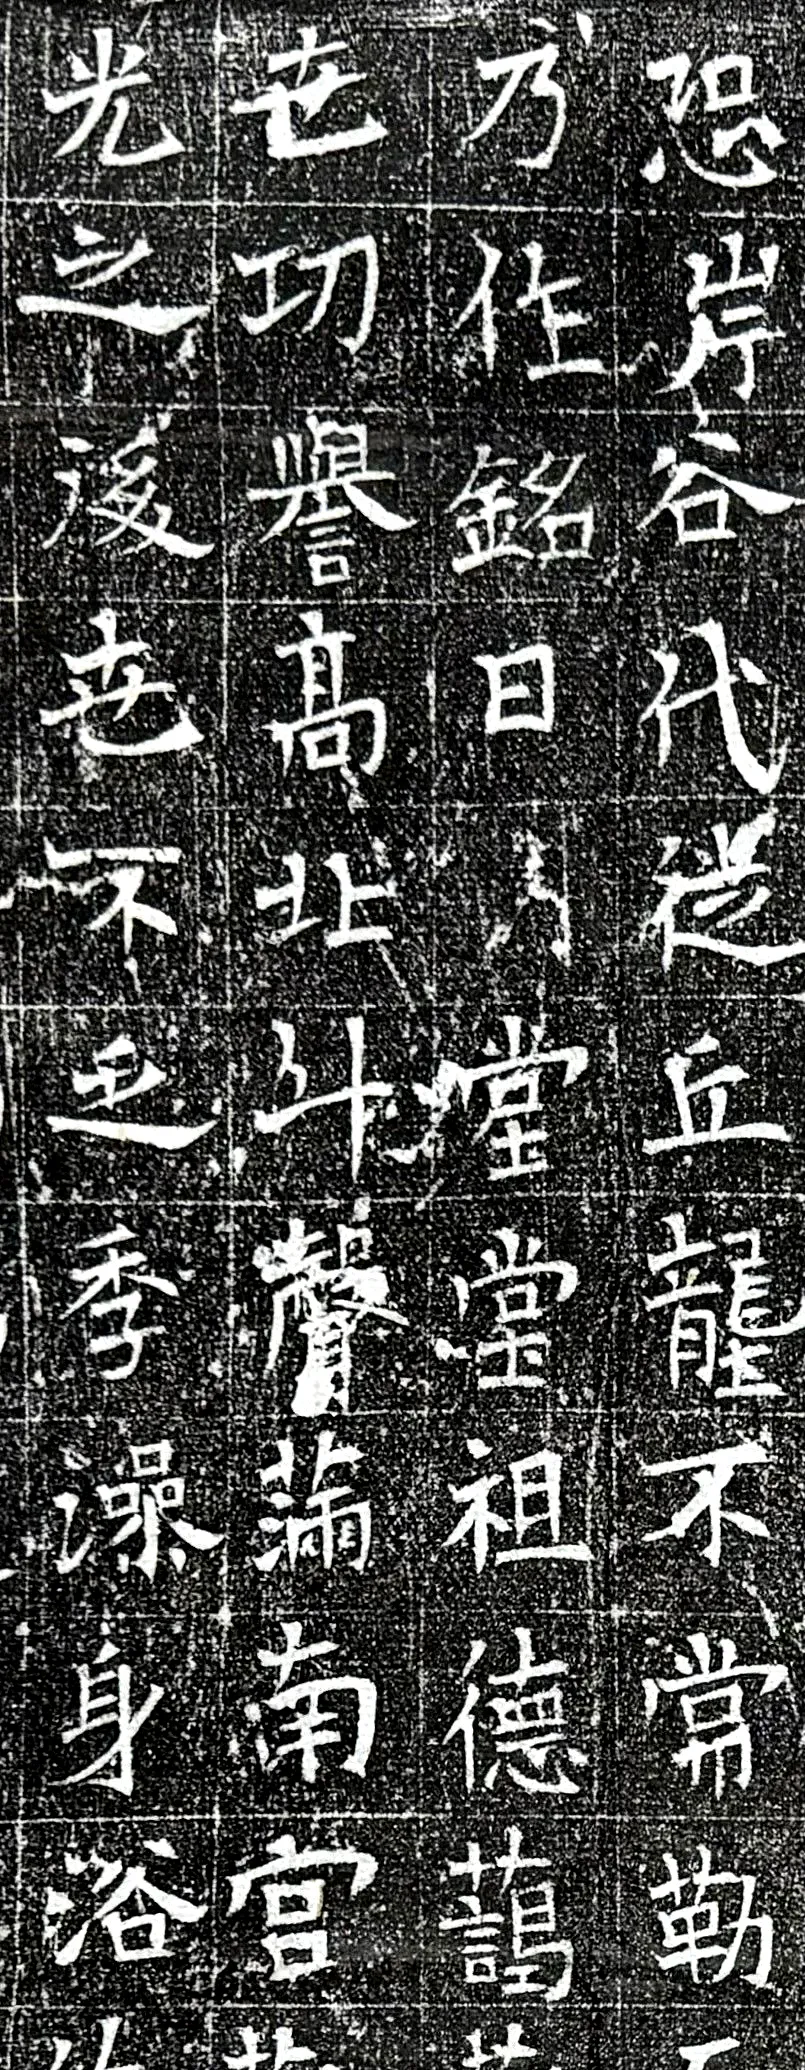 恐岸谷代従丘壟不常勒
乃作銘曰　堂堂祖德藹
世功譽高北斗聲滿南宮
光之後世不乏季澡身浴